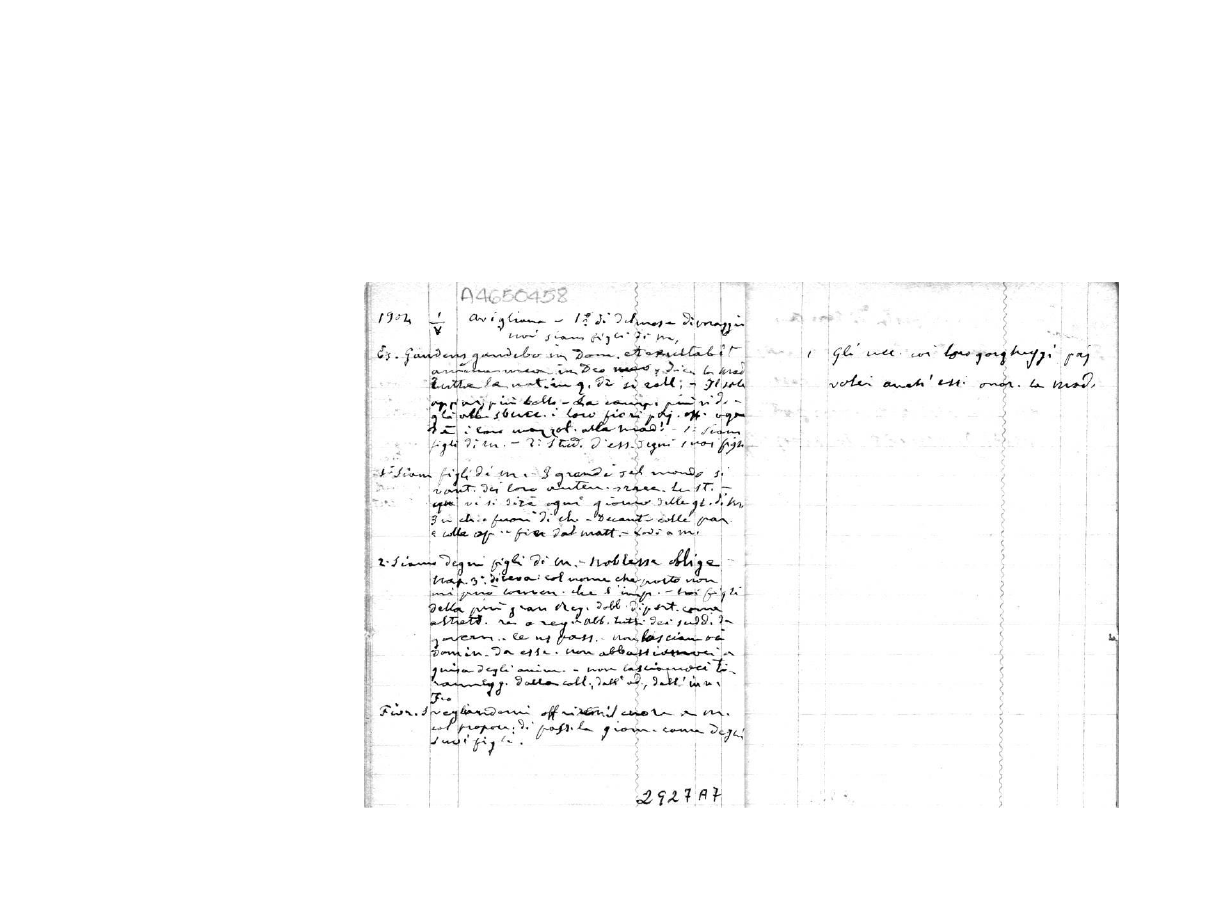 A4650458
1904 1/V Avigliana - 1° di del mese di maggio
noi siam figli di M,
Es. Gaudens gaudebo in Dom. et exultabit
anima mea in Deo meo, dica la mad
tutta la nat. in q. dì si coll; - Il sole
appar più bello - La camp. più rid. -
gli alb. sbucc. i loro fiori paj. off. ogn
i loro mazzol. alla mad! - 1: siam
figli di M. - 2: Stud. d'ess. degni suoi figli
1: Siam figli di M. - I grandi del mondo si
vant. dei loro anten.
qui vi si dirà ogni giorno delle gl. di M
in ch. e fuori di ch. - colle par.
e colle op. - fin dal matt. - Lodi a M.
2: Siamo degni figli di M. - Noblesse oblige -
Nap. 3°. diceva: col nome che porto non
mi può conven. che l'imp. - Noi figli
della più gran Reg. dobb. diport. come
altrett. re o reg. - abb. tutti dei sudd. da
govern. - le ns pass. - non lasciamoci
domin. da esse - non abbassiamoci a
guisa degli anim. - non lasciamoci ti-
ranneggi. dalla coll., dall' od., dall' inv.
Fio
Fior. Svegliandomi offrirò il cuore a M.
col propon. di pass. la giorn. come degli
suoi figli.
2927A7
1 Gli ucc. coi loro gorgheggi paj
voler anch' essi onor. la mad.